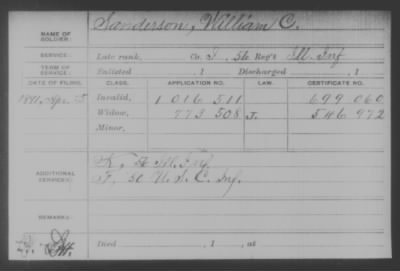 NAME OF SOLDIER: Sanderson, William C.
SERVICE: Late rank, Co. I, 56 Reg't Ill. Inf.
TERM OF SERVICE: Enlisted , 1 Discharged , 1
DATE OF FILING. CLASS. APPLICATION NO. LAW. CERTIFICATE NO.
1891, Apr. 5 Invalid, 1 016 511 699 060
Widow, 773 508 J. 546 972
Minor,
ADDITIONAL SERVICES: K, 56 Ill. Inf.
F, 50 U. S. C. Inf.
REMARKS:
Died , 1 , at